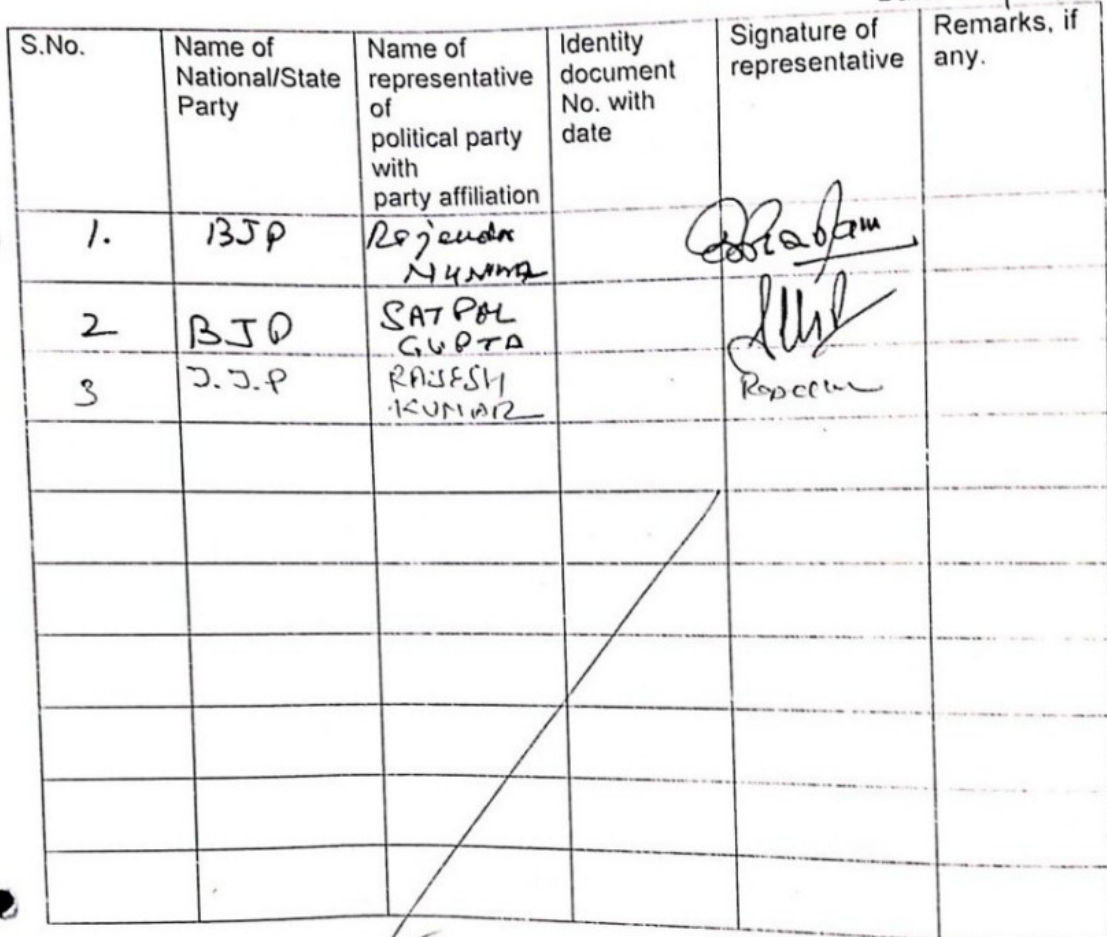 S.No.
Name of
National/State
Party
Name of
representative
of
political party
with
party affiliation
Identity
document
No. with
date
Signature of
representative
Remarks, if
any.
1.
BJP
Rajendra
2
BJP
SATPAL
GUPTA
3
J.J.P
RAJESH
KUMAR